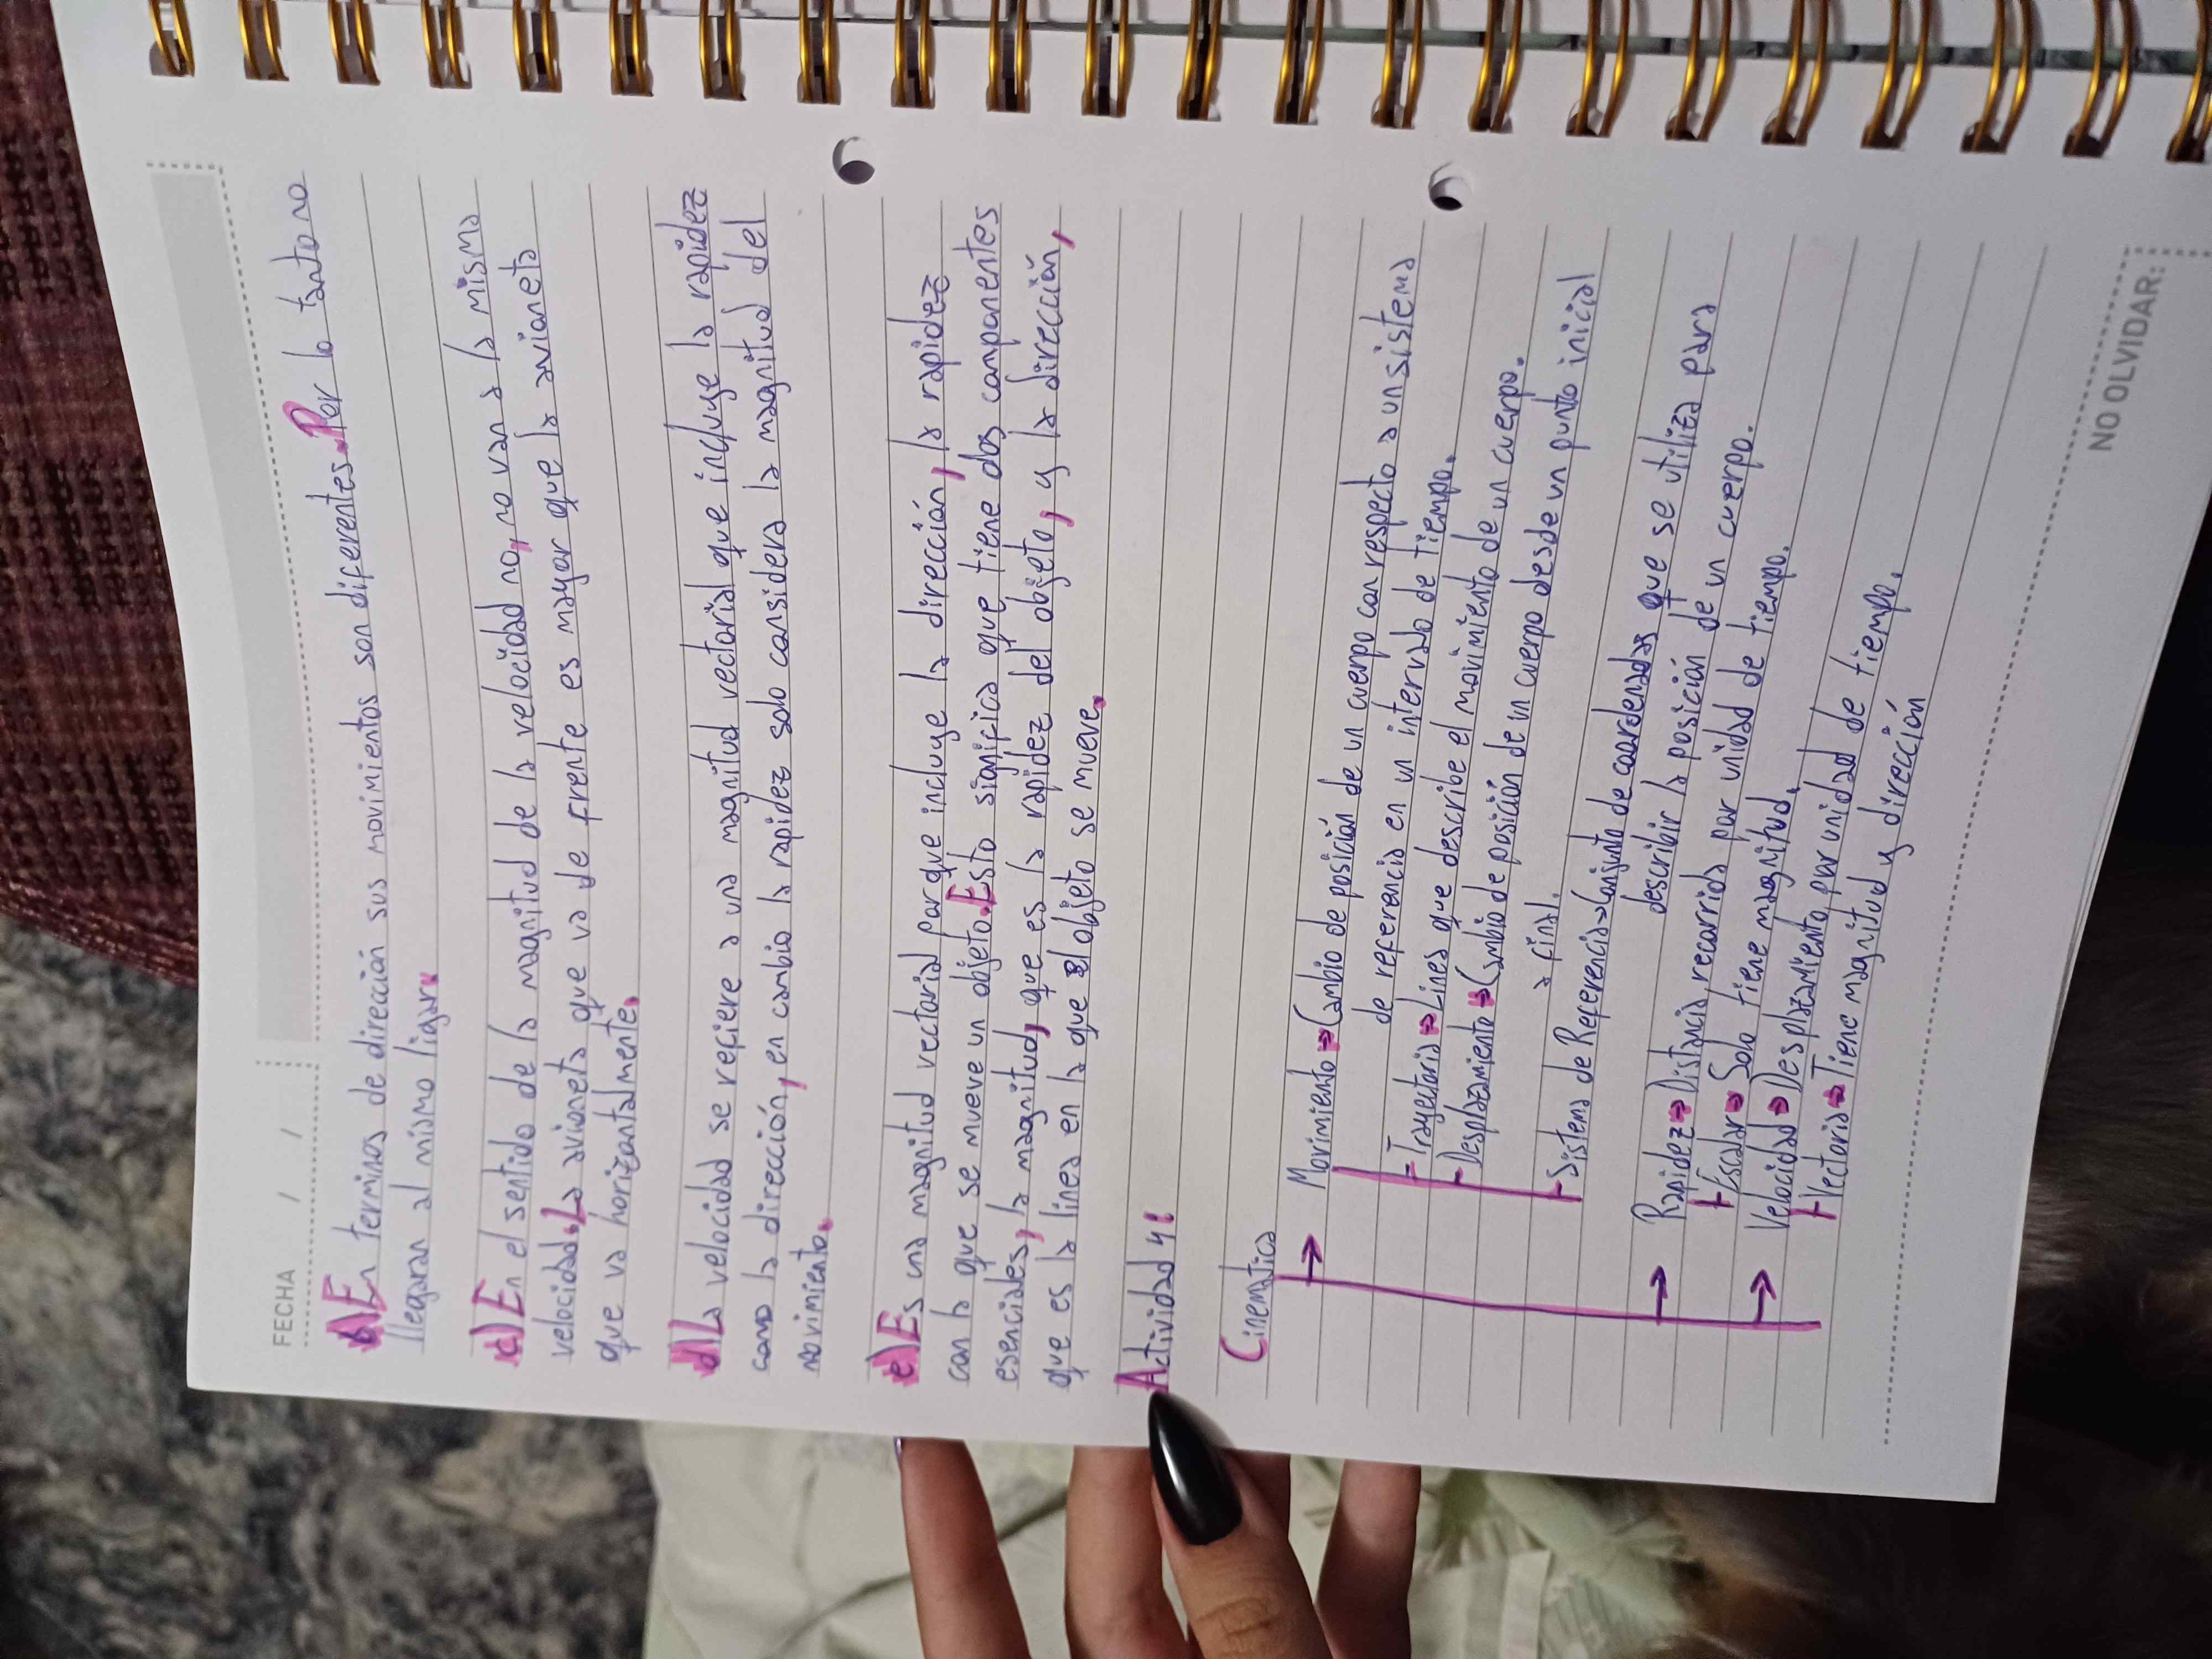 FECHA / /
b) En terminos de dirección sus movimientos son diferentes. Por lo tanto no
llegaran al mismo ligar.
c) En el sentido de la magnitud de la velocidad no, no van a la misma
velocidad. La avioneta que va de frente es mayor que la avioneta
que va horizontalmente.
d) La velocidad se refiere a una magnitud vectorial que incluye la rapidez
como la dirección, en cambio la rapidez solo considera la magnitud del
movimiento.
e) Es una magnitud vectorial porque incluye la dirección, la rapidez
con la que se mueve un objeto. Esto significa que tiene dos componentes
esenciales, la magnitud, que es la rapidez del objeto, y la dirección,
que es la linea en la que el objeto se mueve.
Actividad 4:
Cinematica
→ Movimiento → Cambio de posición de un cuerpo con respecto a un sistema
de referencia en un intervalo de tiempo.
Trayectoria → Linea que describe el movimiento de un cuerpo.
Desplazamiento → Cambio de posición de un cuerpo desde un punto inicial
a final.
Sistema de Referencia → Conjunto de coordenadas que se utiliza para
describir la posición de un cuerpo.
→ Rapidez → Distancia recorrida por unidad de tiempo.
Escalar → Solo tiene magnitud.
→ Velocidad → Desplazamiento por unidad de tiempo.
Vectoria → Tiene magnitud y dirección
NO OLVIDAR: